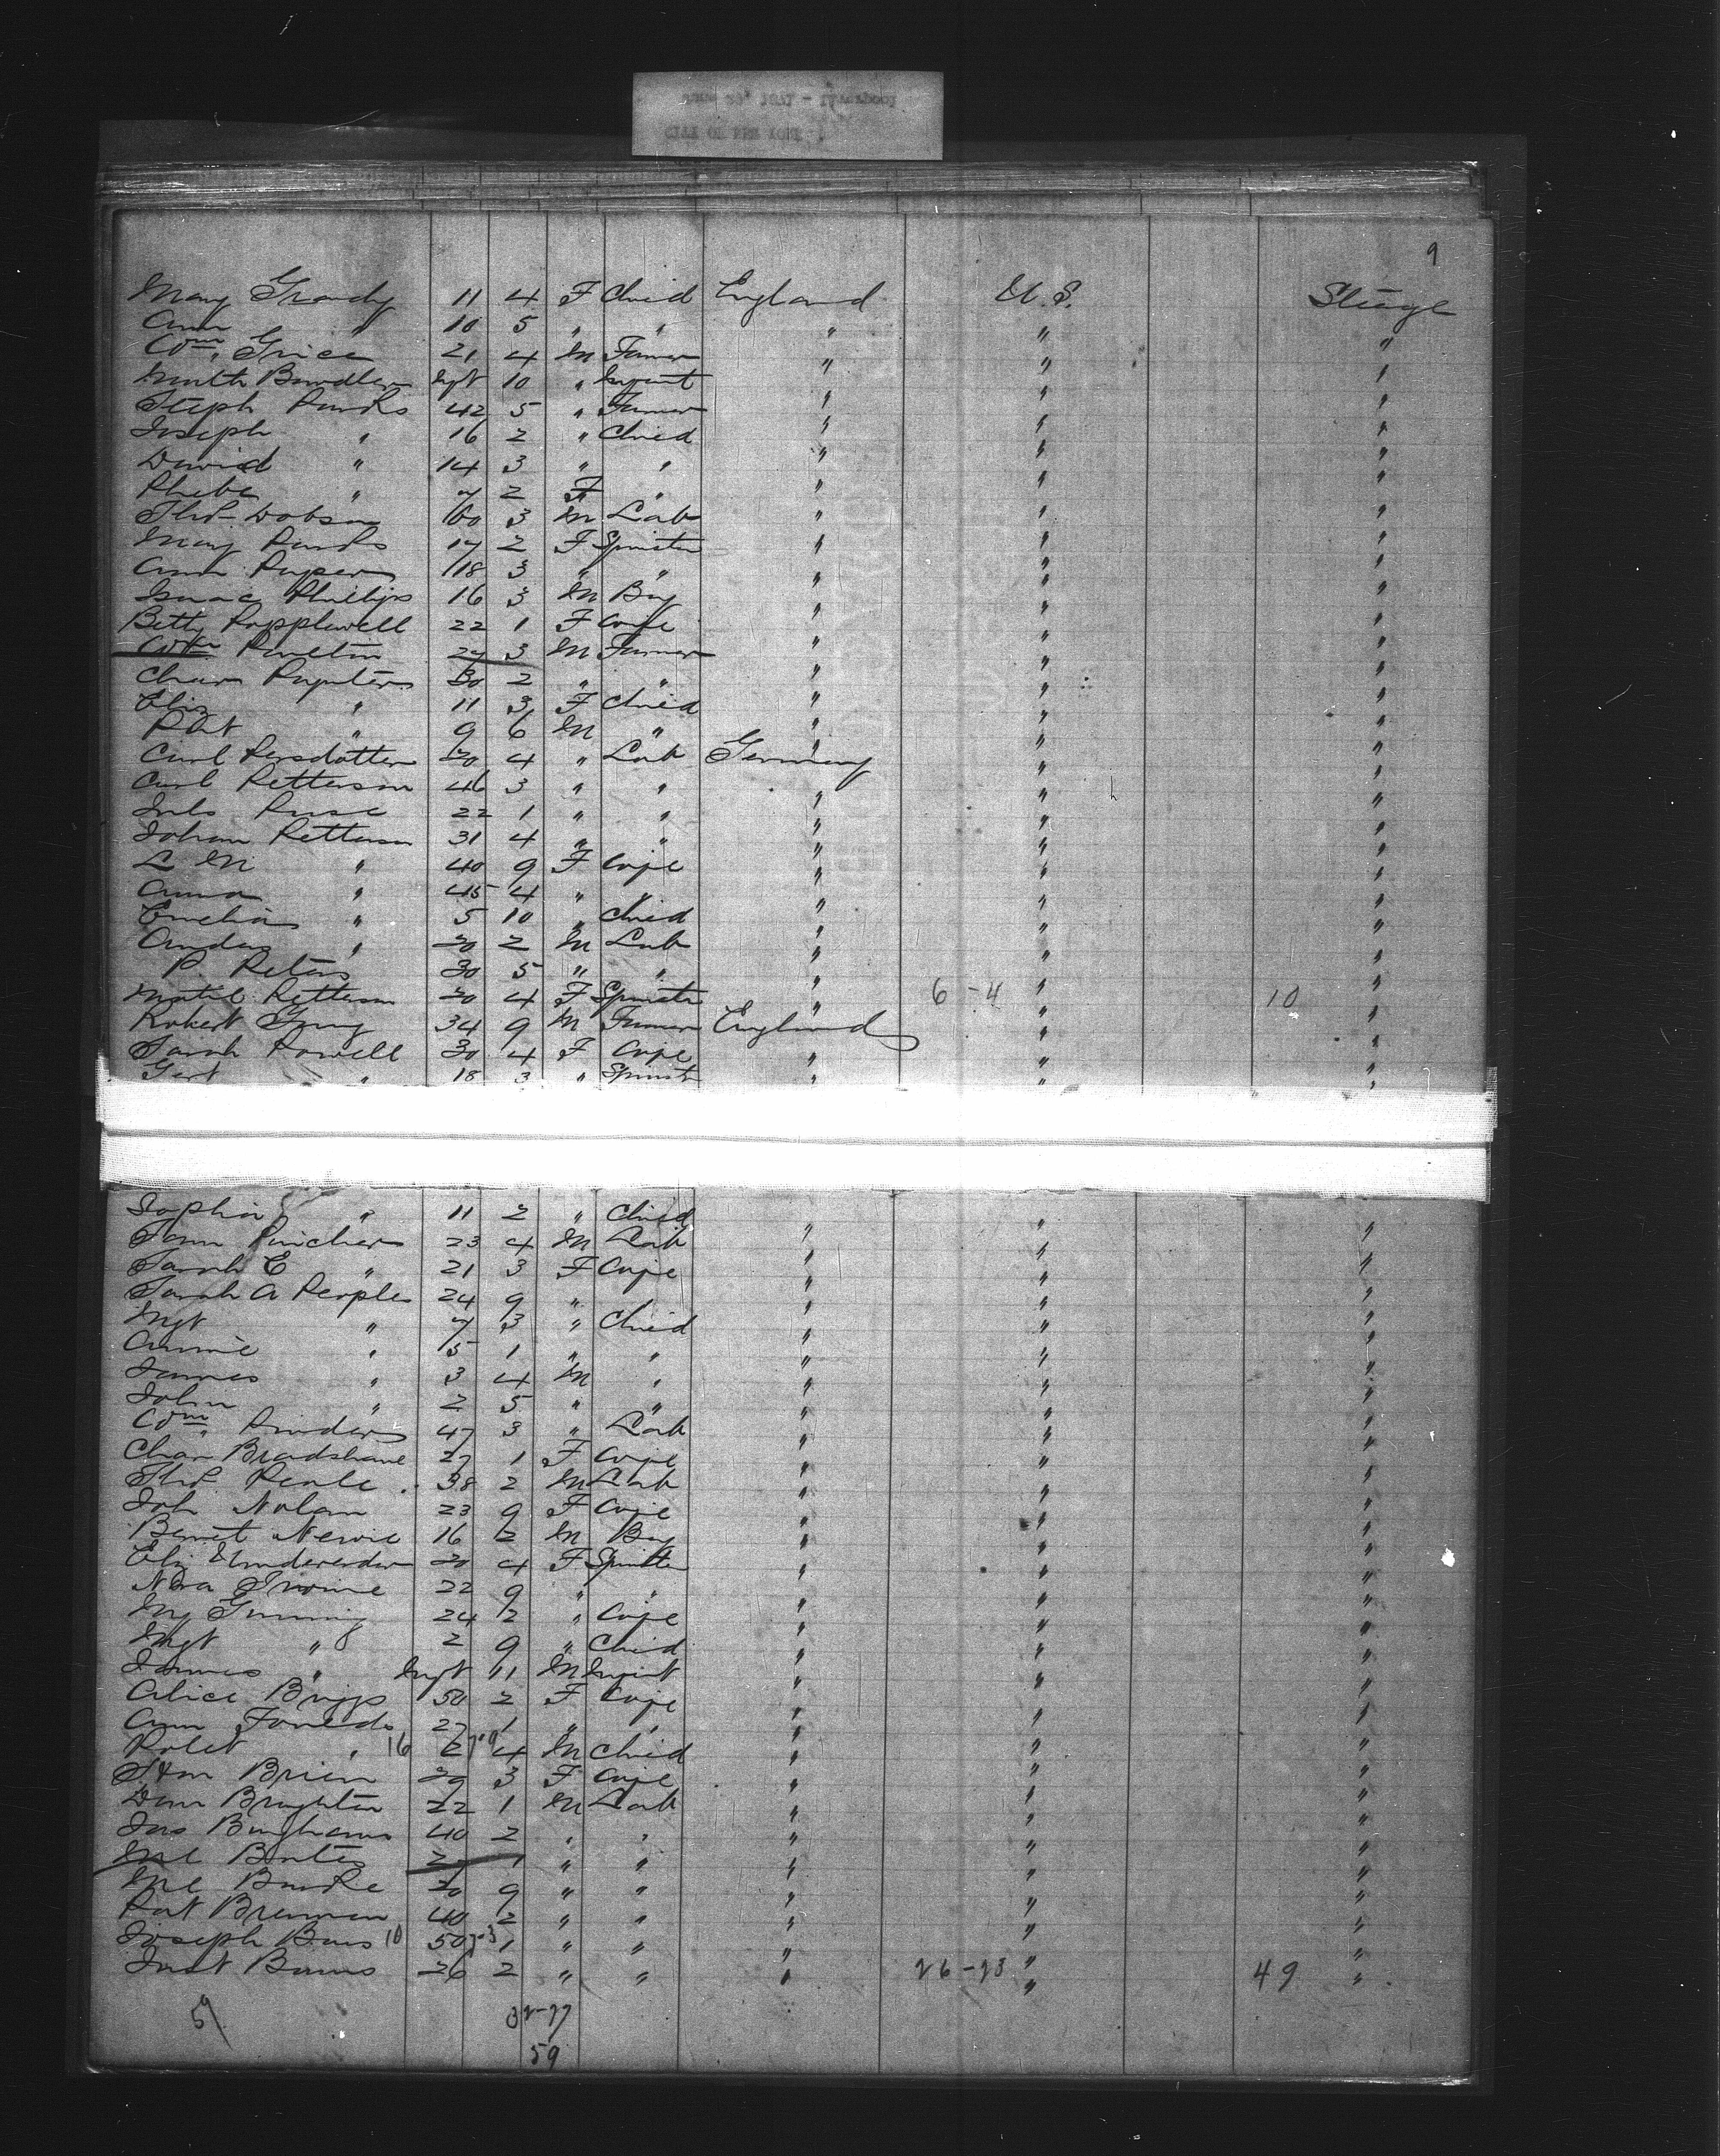 9
Mary Grady 11 4 F Child England U.S. Steage
Ann " 10 5 " " " " "
Wm Grice 21 4 M Farmer " " "
Inft 10 " Infant " " "
Steph 42 5 " Farmer " " "
Joseph " 16 2 " Child " " "
David " 14 3 " " " " "
Phebe " 7 2 F " " " "
Thos Dobson 60 3 M Lab " " "
Mary 17 2 F Spinster " " "
Ann 18 3 " " " " "
Isaac Phillips 16 3 M Boy " " "
Betty Popplewell 22 1 F Wife " " "
Wm 27 3 M Farmer " " "
Chas 30 2 " " " " "
Eliz " 11 3 F Child " " "
Robt " 9 6 M " " " "
Carl Persdotter 20 4 " Lab Germany " "
Carl Petterson 46 3 " " " " "
22 1 " " " " "
Johan Petterson 31 4 " " " " "
L M " 40 9 F Wife " " "
Anna " 45 4 " " " " "
Emelia " 5 10 " Child " " "
Andas " 20 2 M Lab " " "
P. Peters 30 5 " " " " "
Matil Petterson 20 4 F Spinster " 6-4 " 10 "
Robert Gray 34 9 M Farmer England " "
Sarah Powell 30 4 F Wife " " "
Gert " 18 3 " Spinster " " "
Sophia " 11 2 " Child " " "
Saml Pincher 23 4 M Lab " " "
Sarah E " 21 3 F Wife " " "
Sarah A Peoples 24 9 " " " "
Mgt " 7 3 " Child " " "
Annie " 5 1 " " " " "
James " 3 4 M " " " "
John " 2 5 " " " " "
Wm 47 3 " Lab " " "
Char Bradshaw 27 1 F Wife " " "
Thos Peale 38 2 M Lab " " "
Joh Nolan 23 9 F Wife " " "
16 2 M Boy " " "
Eliz 20 4 F Spinster " " "
Nora Irvine 22 9 " " " " "
My Gunning 24 2 " Wife " " "
Mgt " 2 9 " Child " " "
James " Inft 11 M Infant " " "
Alice Briggs 50 2 F Wife " " "
Ann 27 1 " " " " "
Robt " 16 4 M Child " " "
Brien 29 3 F Wife " " "
Danl Brighton 22 1 M Lab " " "
Jas Bingham 40 2 " " " " "
Ml Bates 27 1 " " " " "
Ml Burke 20 9 " " " " "
Pat Brennan 40 2 " " " " "
Joseph 10 50 1 " " " " "
Burns 26 2 " " " 26-23 " 49 "
59 32-27
59